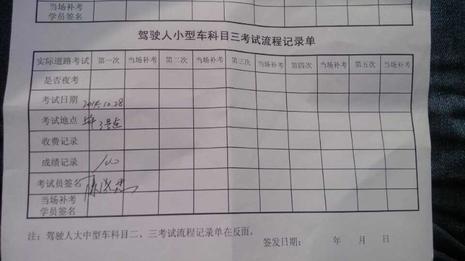 当场补考
学员签名
驾驶人小型车科目三考试流程记录单
实际道路考试 第一次 当场补考 第二次 当场补考 第三次 当场补考 第四次 当场补考 第五次 当场补考
是否夜考
考试日期
考试地点
收费记录
成绩记录
考试员签名
当场补考
学员签名
注：驾驶人大中型车科目二、三考试流程记录单在反面。
签发日期： 年 月 日